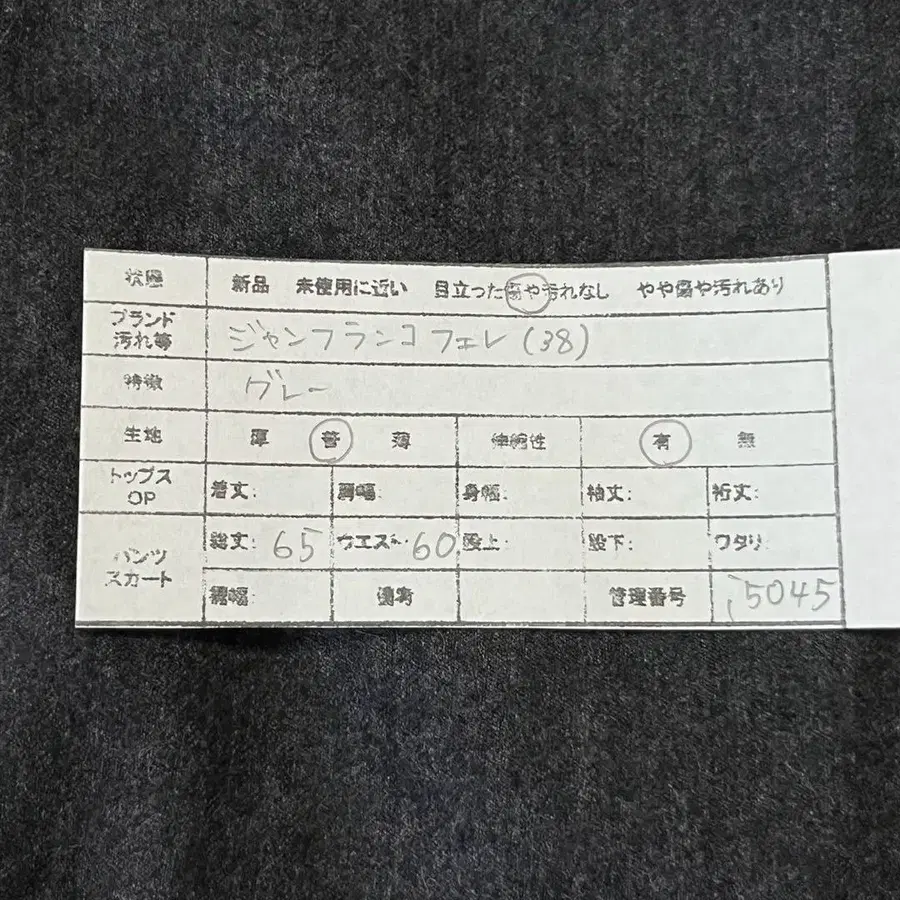 状態 新品 未使用に近い 目立った傷や汚れなし やや傷や汚れあり
ブランド
汚れ等 ジャンフランコフェレ(38)
特徴 グレー
生地 厚 普 薄 伸縮性 有 無
トップス
OP 着丈: 肩幅: 身幅: 袖丈: 裄丈:
パンツ
スカート 総丈: 65 ウエスト: 60 股上: 股下: ワタリ:
裾幅: 備考 管理番号 i5045